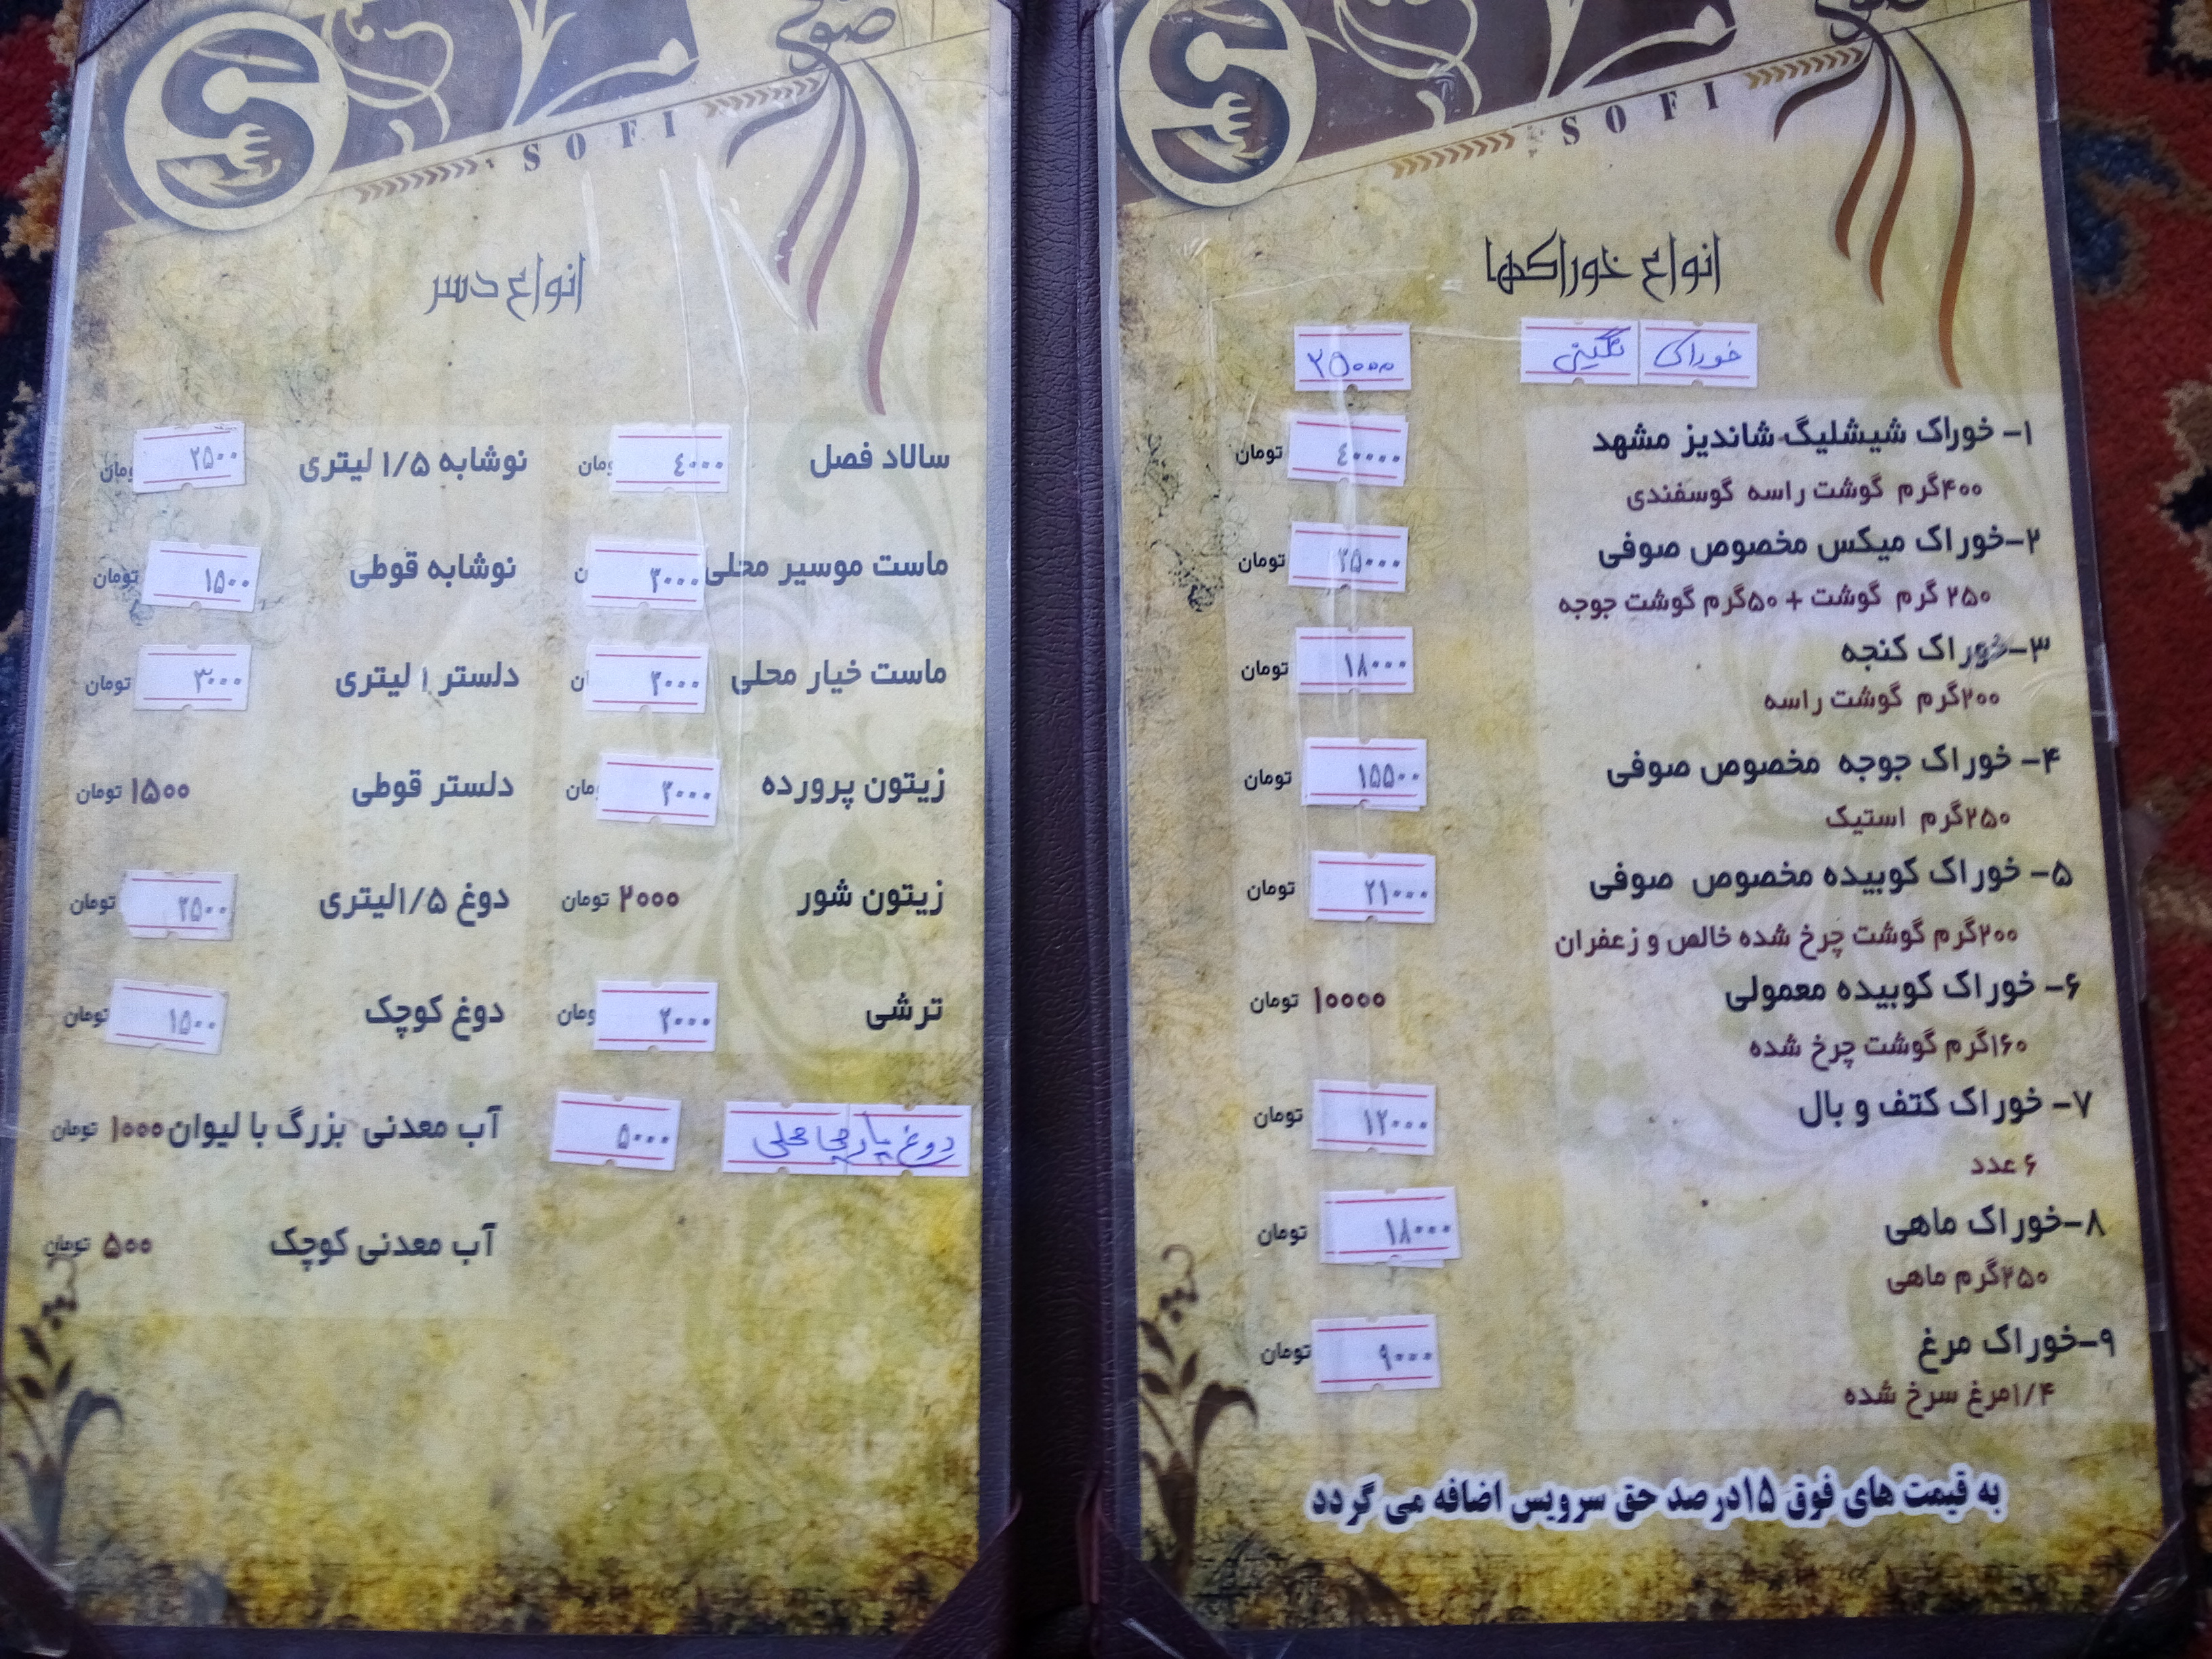 صوفی
S O F I
انواع خوراکها
خوراک نگینی ۲۵۰۰۰
۱- خوراک شیشلیگ شاندیز مشهد ۴۰۰۰۰ تومان
۴۰۰گرم گوشت راسه گوسفندی
۲-خوراک میکس مخصوص صوفی ۲۵۰۰۰ تومان
۲۵۰ گرم گوشت + ۵۰گرم گوشت جوجه
۳-خوراک کنجه ۱۸۰۰۰ تومان
۲۰۰گرم گوشت راسه
۴- خوراک جوجه مخصوص صوفی ۱۵۵۰۰ تومان
۲۵۰گرم استیک
۵- خوراک کوبیده مخصوص صوفی ۲۱۰۰۰ تومان
۲۰۰گرم گوشت چرخ شده خالص و زعفران
۶- خوراک کوبیده معمولی ۱۰۰۰۰ تومان
۱۶۰گرم گوشت چرخ شده
۷- خوراک کتف و بال ۱۲۰۰۰ تومان
۶ عدد
۸-خوراک ماهی ۱۸۰۰۰ تومان
۲۵۰گرم ماهی
۹-خوراک مرغ ۹۰۰۰ تومان
۱/۴مرغ سرخ شده
به قیمت های فوق ۱۵درصد حق سرویس اضافه می گردد
صوفی
S O F I
انواع دسر
سالاد فصل ۴۰۰۰ تومان
ماست موسیر محلی ۳۰۰۰
ماست خیار محلی ۲۰۰۰
زیتون پرورده ۳۰۰۰ تومان
زیتون شور ۲۰۰۰ تومان
ترشی ۲۰۰۰ تومان
دوغ پارچ محلی ۵۰۰۰
نوشابه ۱/۵ لیتری ۲۵۰۰ تومان
نوشابه قوطی ۱۵۰۰ تومان
دلستر ۱ لیتری ۳۰۰۰ تومان
دلستر قوطی ۱۵۰۰ تومان
دوغ ۱/۵لیتری ۲۵۰۰ تومان
دوغ کوچک ۱۵۰۰ تومان
آب معدنی بزرگ با لیوان ۱۰۰۰ تومان
آب معدنی کوچک ۵۰۰ تومان